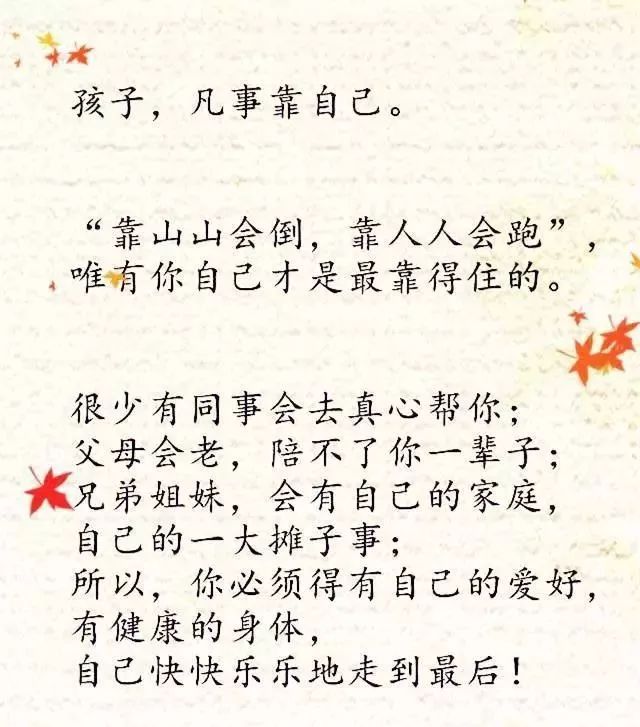 孩子，凡事靠自己。
“靠山山会倒，靠人人会跑”，
唯有你自己才是最靠得住的。
很少有同事会去真心帮你；
父母会老，陪不了你一辈子；
兄弟姐妹，会有自己的家庭，
自己的一大摊子事；
所以，你必须得有自己的爱好，
有健康的身体，
自己快快乐乐地走到最后！